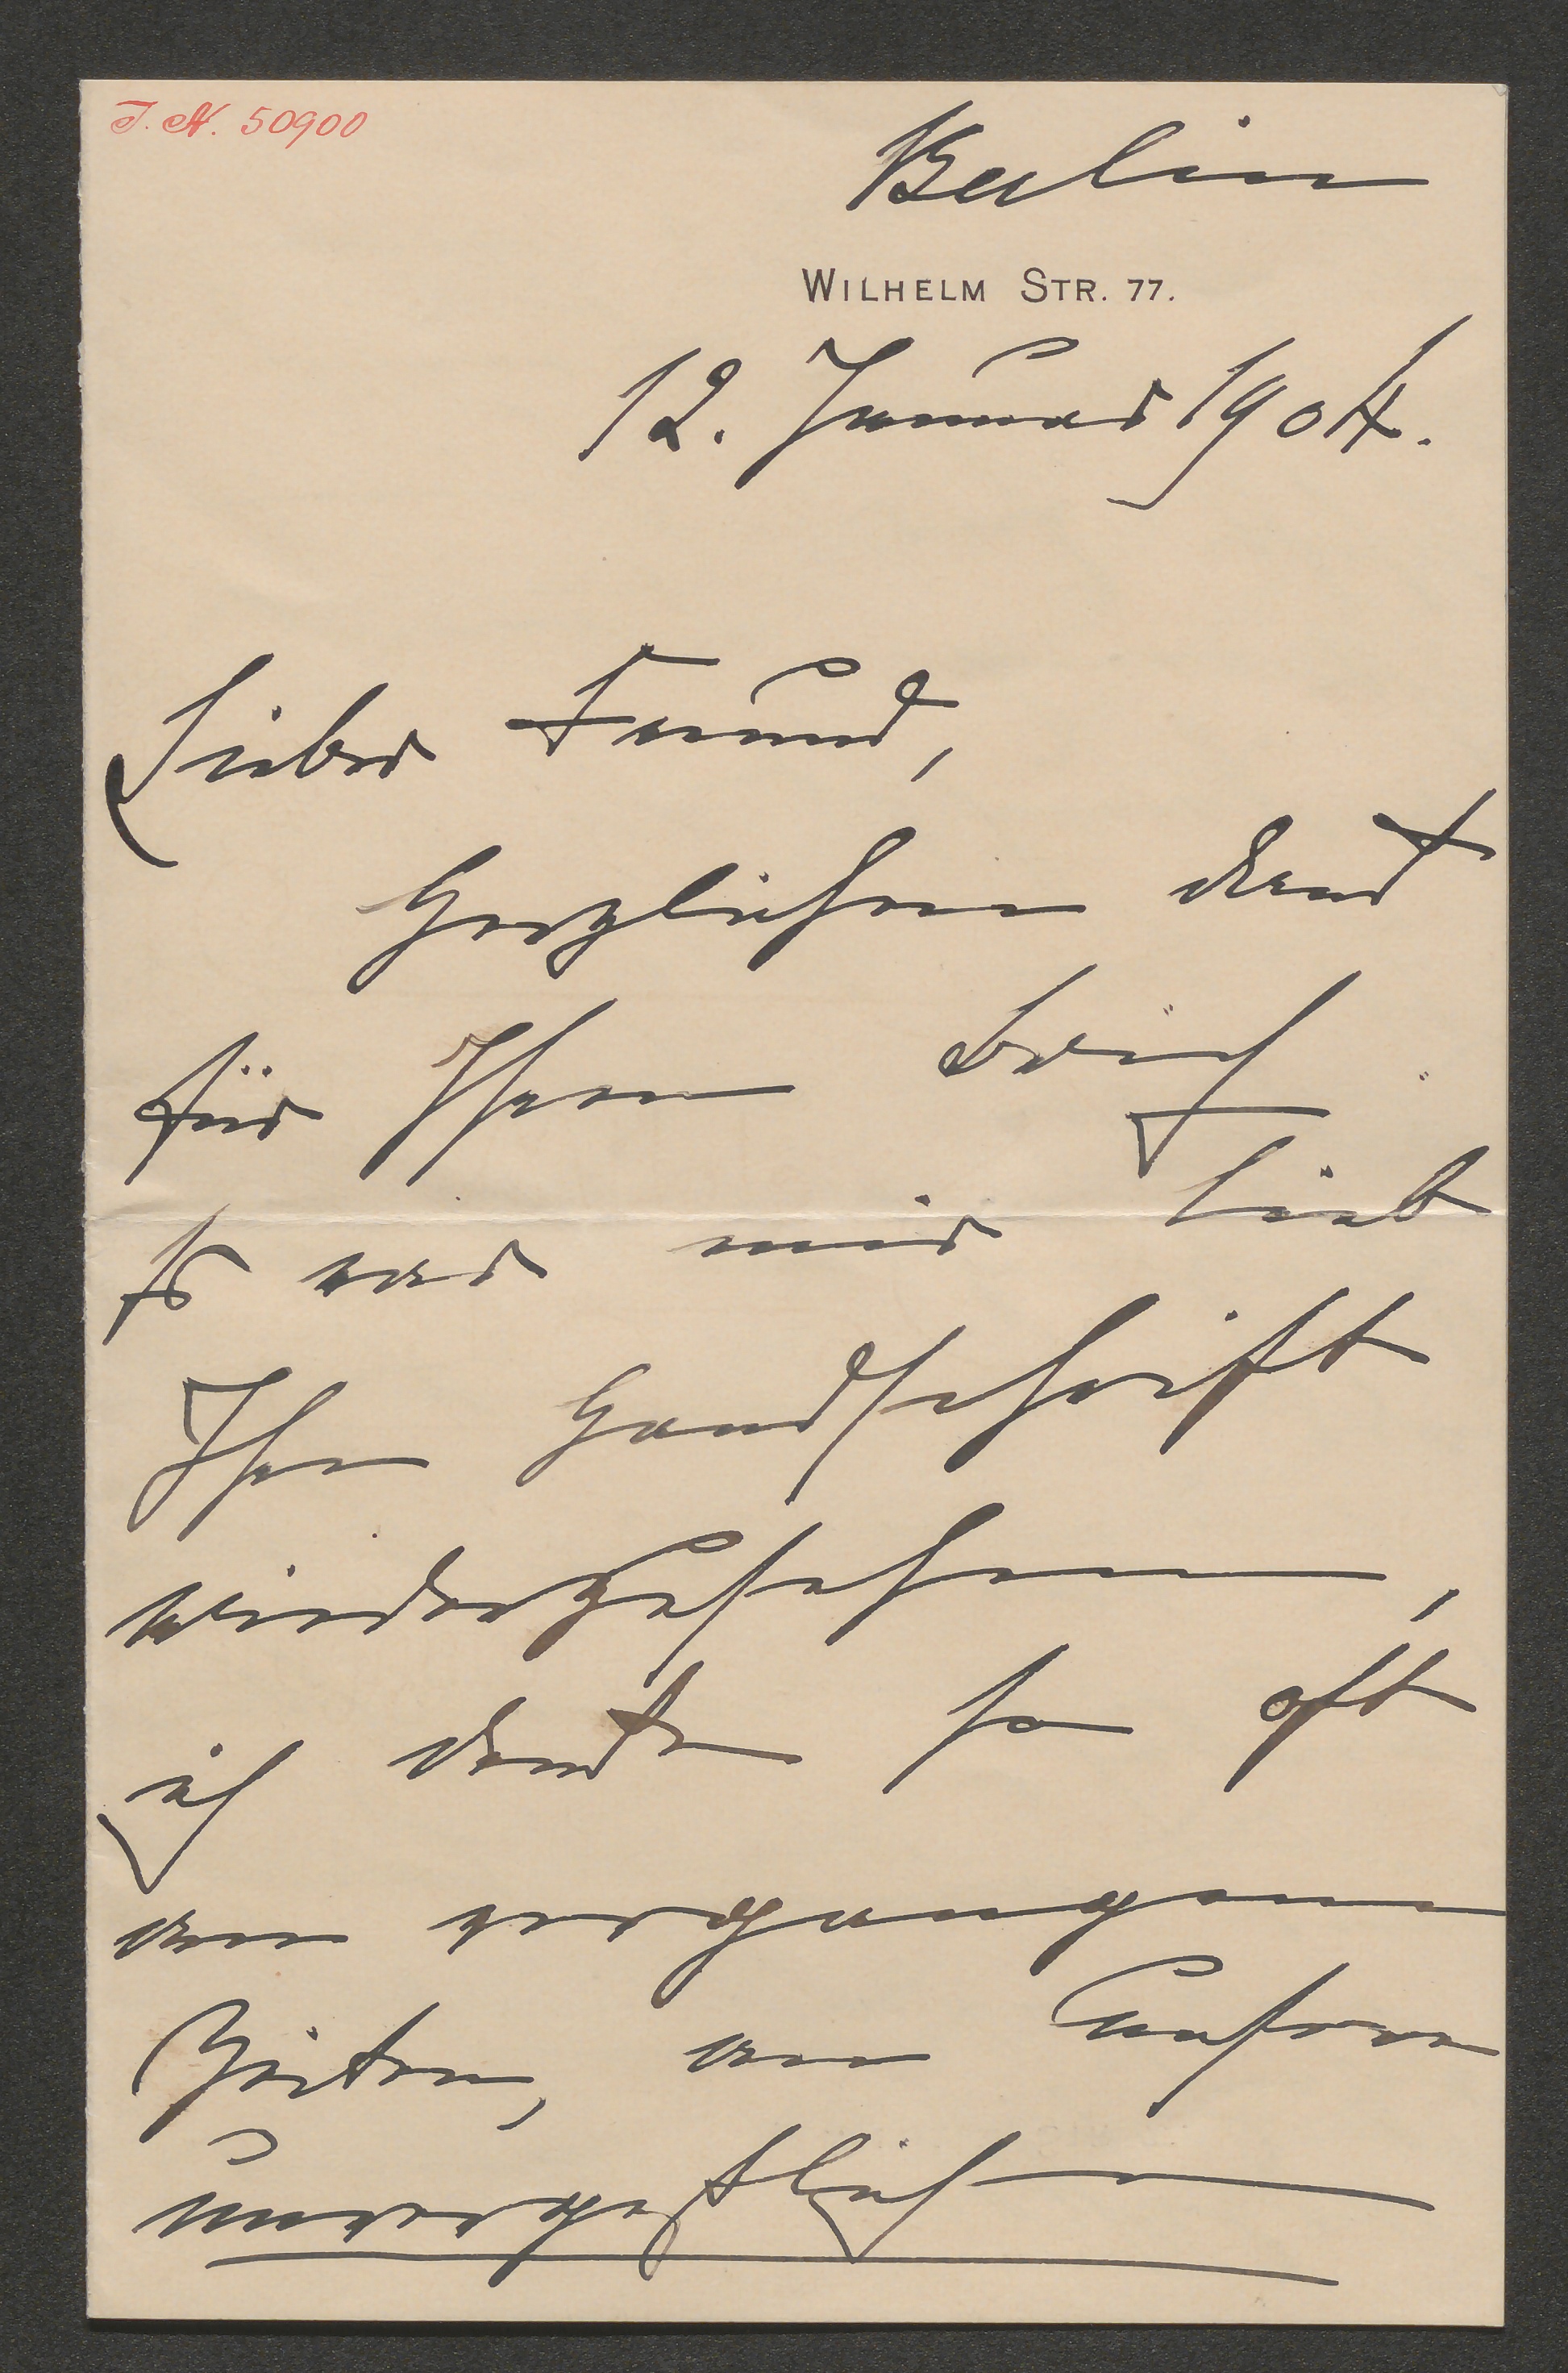 J. N. 50900
Berlin
WILHELM STR. 77.
12. Januar 1904.
Lieber Freund,
Herzlichen Dank
für Ihren Brief
Es war mir lieb
Ihre Handschrift
wiederzusehen,
ich denke so oft
an vergangene
Zeiten, an unsere
unvergeßliche